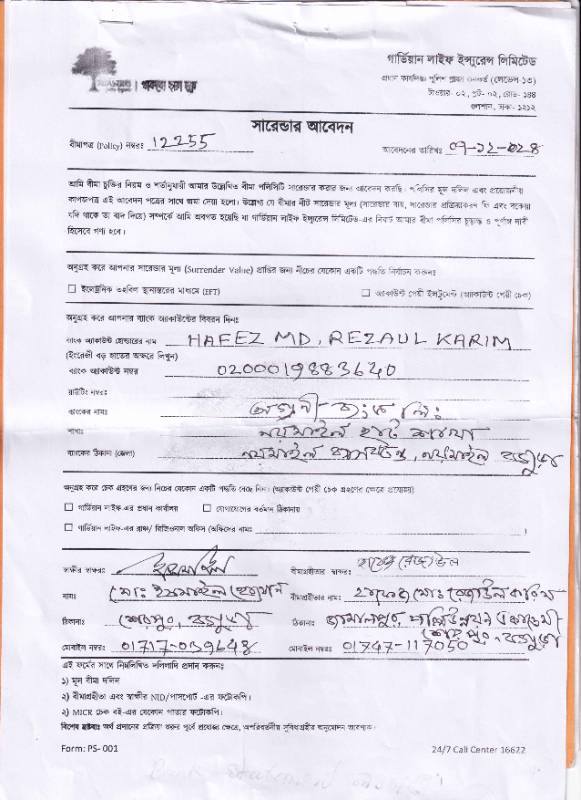 গার্ডিয়ান লাইফ ইন্স্যুরেন্স লিমিটেড
প্রধান কার্যালয়: পুলিশ প্লাজা কনকর্ড (লেভেল ১৩)
টাওয়ার- ০২, প্লট- ০২, রোড- ১৪৪
গুলশান, ঢাকা- ১২১২
সারেন্ডার আবেদন
বীমাপত্র (Policy) নম্বরঃ 12255
আবেদনের তারিখঃ
আমি বীমা চুক্তির নিয়ম ও শর্তানুযায়ী আমার উল্লেখিত বীমা পলিসিটি সারেন্ডার করার জন্য আবেদন করছি। পলিসির মূল দলিল এবং প্রয়োজনীয়
কাগজপত্র এই আবেদন পত্রের সাথে জমা দেয়া হলো। উল্লেখ্য যে বীমার নীট সারেন্ডার মূল্য (সারেন্ডার দায়, সারেন্ডার প্রক্রিয়াকরণ ফি এবং বকেয়া
যদি থাকে তা বাদ দিয়ে) সম্পর্কে আমি অবগত হয়েছি যা গার্ডিয়ান লাইফ ইন্স্যুরেন্স লিমিটেড-এর নিকট আমার বীমা পলিসির চূড়ান্ত ও পূর্ণাঙ্গ দাবী
হিসেবে গণ্য হবে।
অনুগ্রহ করে আপনার সারেন্ডার মূল্য (Surrender Value) প্রাপ্তির জন্য নীচের যেকোন একটি পদ্ধতি নির্বাচন করুনঃ
ইলেক্ট্রনিক তহবিল স্থানান্তরের মাধ্যমে (EFT)
অ্যাকাউন্ট পেয়ী ইন্সট্রুমেন্ট (অ্যাকাউন্ট পেয়ী চেক)
অনুগ্রহ করে আপনার ব্যাংক অ্যাকাউন্টের বিবরন দিনঃ
ব্যাংক অ্যাকাউন্ট হোল্ডারের নাম HAFEZ MD. REZAUL KARIM
(ইংরেজী বড় হাতের অক্ষরে লিখুন)
ব্যাংক অ্যাকাউন্ট নম্বর 0200019883640
রাউটিং নম্বরঃ
ব্যাংকের নামঃ অগ্রণী ব্যাংক লিঃ
শাখাঃ নয়মাইল হাট শাখা
ব্যাংকের ঠিকানা (জেলা) নয়মাইল বাসষ্ট্যান্ড, নয়মাইল বগুড়া
অনুগ্রহ করে চেক গ্রহণের জন্য নিচের যেকোন একটি পদ্ধতি বেছে নিন। (অ্যাকাউন্ট পেয়ী চেক গ্রহণের ক্ষেত্রে প্রযোজ্য)
গার্ডিয়ান লাইফ-এর প্রধান কার্যালয়
যোগাযোগের বর্তমান ঠিকানায়
গার্ডিয়ান লাইফ-এর ব্রাঞ্চ/ রিজিওনাল অফিস (অফিসের নামঃ )
স্বাক্ষীর স্বাক্ষরঃ
বীমাগ্রহীতার স্বাক্ষরঃ হাফেজ রেজাউল
নামঃ মোঃ ইসমাইল হোসেন
বীমাগ্রহীতার নামঃ হাফেজ মোঃ রেজাউল করিম
ঠিকানাঃ শেরপুর, বগুড়া
ঠিকানাঃ জামালপুর পল্লিউন্নয়ন একাডেমী
শেরপুর, বগুড়া
মোবাইল নম্বরঃ 01717-039648
মোবাইল নম্বরঃ 01747-117050
এই ফর্মের সাথে নিম্নলিখিত দলিলাদি প্রদান করুনঃ
১) মূল বীমা দলিল
২) বীমাগ্রহীতা এবং স্বাক্ষীর NID/পাসপোর্ট -এর ফটোকপি।
২) MICR চেক বই-এর যেকোন পাতার ফটোকপি।
বিশেষ দ্রষ্টব্যঃ অর্থ প্রদানের প্রক্রিয়া শুরুর পূর্বে প্রযোজ্য ক্ষেত্রে, অপরিবর্তনীয় সুবিধাগ্রহীর অনুমোদন আবশ্যক।
Form: PS- 001
24/7 Call Center 16622